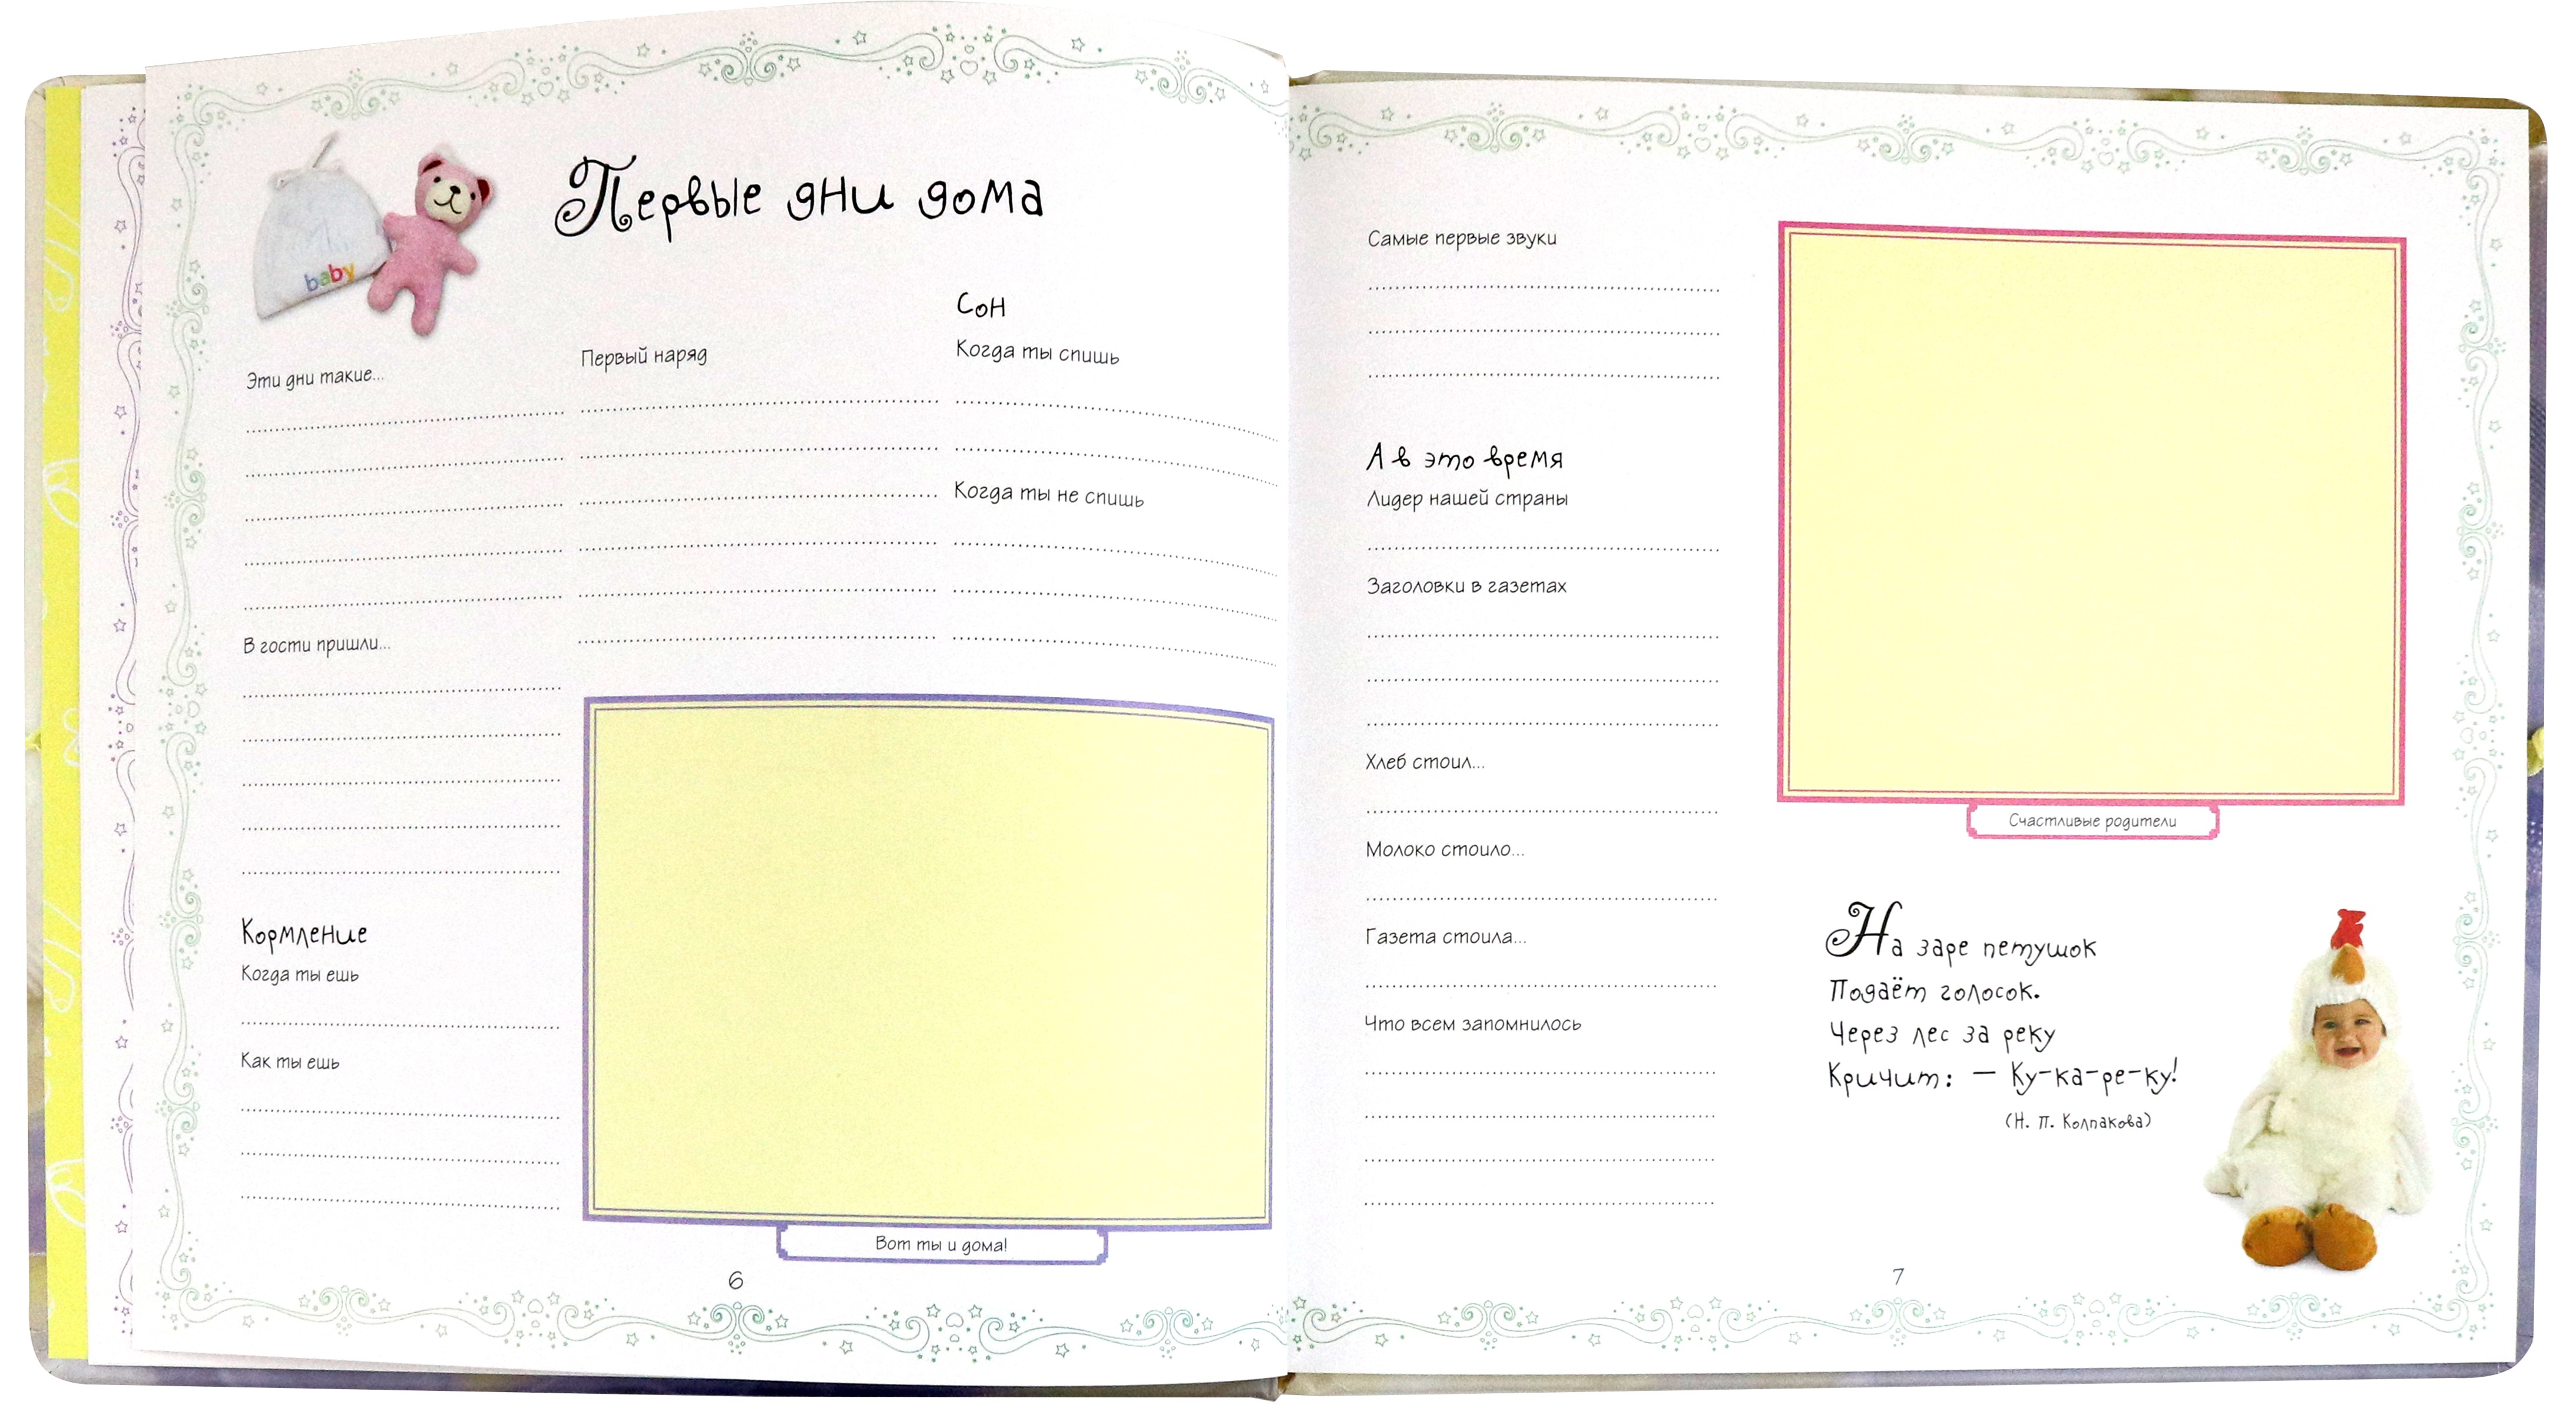 baby
Первые дни дома
Эти дни такие...
В гости пришли...
Кормление
Когда ты ешь
Как ты ешь
Первый наряд
Сон
Когда ты спишь
Когда ты не спишь
Вот ты и дома!
6
Самые первые звуки
А в это время
Лидер нашей страны
Заголовки в газетах
Хлеб стоил...
Молоко стоило...
Газета стоила...
Что всем запомнилось
Счастливые родители
На заре петушок
Подаёт голосок.
Через лес за реку
Кричит: – Ку-ка-ре-ку!
(Н. П. Колпакова)
7